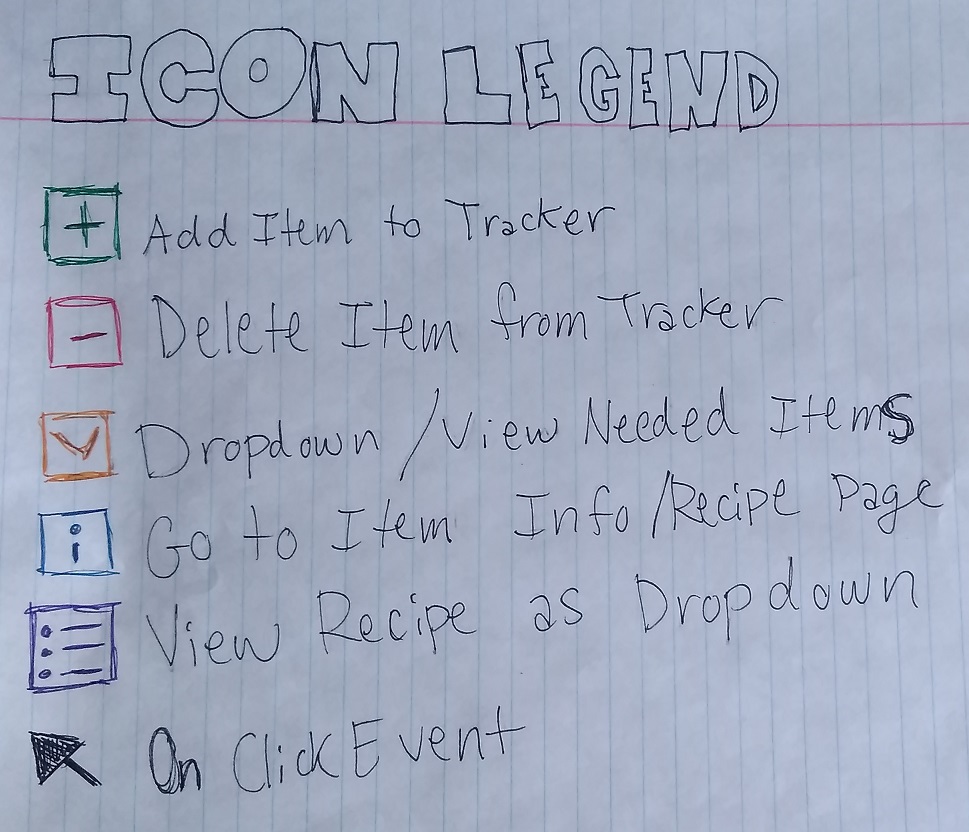 ICON LEGEND
+ Add Item to Tracker
- Delete Item from Tracker
Dropdown / View Needed Items
i Go to Item Info / Recipe Page
View Recipe as Dropdown
On Click Event